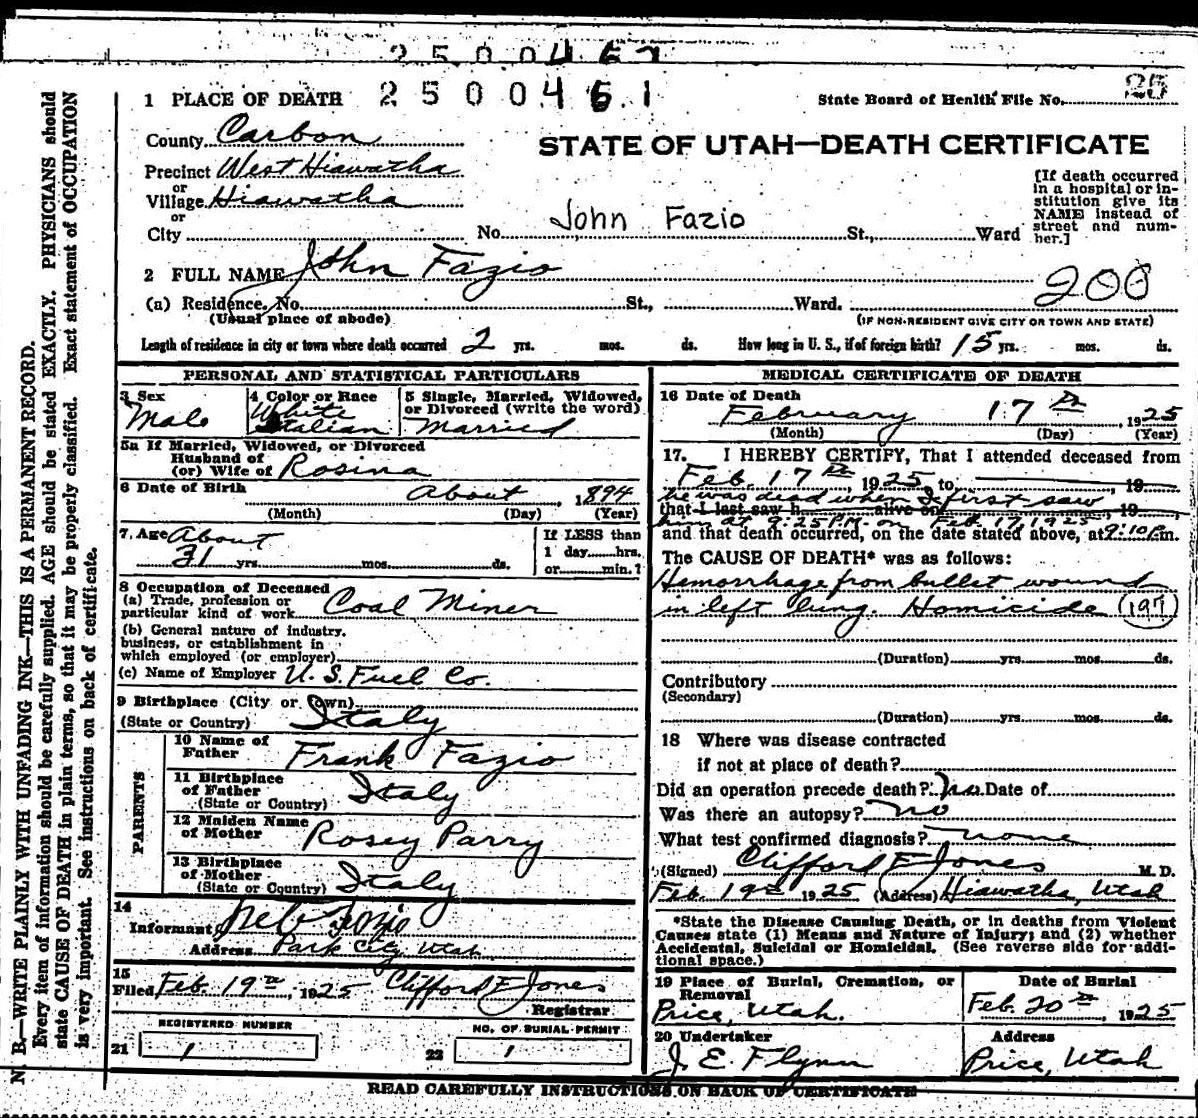 2500467
2500461
25
1 PLACE OF DEATH
State Board of Health File No.
County Carbon
STATE OF UTAH—DEATH CERTIFICATE
Precinct West Hiawatha
or
Village Hiawatha
or
City
No. John Fazio St., Ward
[If death occurred
in a hospital or in-
stitution give its
NAME instead of
street and num-
ber.]
2 FULL NAME John Fazio
200
(a) Residence, No. St., Ward.
(Usual place of abode)
(IF NON-RESIDENT GIVE CITY OR TOWN AND STATE)
Length of residence in city or town where death occurred 2 yrs. mos. ds. How long in U. S., if of foreign birth? 15 yrs. mos. ds.
PERSONAL AND STATISTICAL PARTICULARS
3 Sex
Male
4 Color or Race
White
Italian
5 Single, Married, Widowed,
or Divorced (write the word)
Married
5a If Married, Widowed, or Divorced
Husband of
(or) Wife of Rosina
6 Date of Birth About , 1894
(Month) (Day) (Year)
7. Age About
31 yrs. mos. ds.
If LESS than
1 day......hrs.
or......min.?
8 Occupation of Deceased
(a) Trade, profession or
particular kind of work Coal Miner
(b) General nature of industry,
business, or establishment in
which employed (or employer)
(c) Name of Employer U. S. Fuel Co.
9 Birthplace (City or Town)
(State or Country) Italy
PARENTS
10 Name of
Father Frank Fazio
11 Birthplace
of Father
(State or Country) Italy
12 Maiden Name
of Mother Rosey Parry
13 Birthplace
of Mother
(State or Country) Italy
14
Informant Fazio
Address Park City Utah
15
Filed Feb. 19th, 1925 Clifford E Jones
Registrar
REGISTERED NUMBER
21 1
NO. OF BURIAL PERMIT
22 1
MEDICAL CERTIFICATE OF DEATH
16 Date of Death
February 17th, 1925
(Month) (Day) (Year)
17. I HEREBY CERTIFY, That I attended deceased from
Feb. 17th 1925, to , 19
he was dead when I first saw
that I last saw h alive on , 19
him at 9:25 P.M. on Feb 17, 1925
and that death occurred, on the date stated above, at 9:10 P.m.
The CAUSE OF DEATH* was as follows:
Hemorrhage from bullet wound
in left lung. Homicide (197)
(Duration) yrs. mos. ds.
Contributory
(Secondary)
(Duration) yrs. mos. ds.
18 Where was disease contracted
if not at place of death?
Did an operation precede death? No. Date of
Was there an autopsy? no
What test confirmed diagnosis? none
(Signed) Clifford E Jones M. D.
Feb. 19th 1925 (Address) Hiawatha, Utah
*State the Disease Causing Death, or in deaths from Violent
Causes state (1) Means and Nature of Injury; and (2) whether
Accidental, Suicidal or Homicidal. (See reverse side for addi-
tional space.)
19 Place of Burial, Cremation, or
Removal
Price, Utah.
Date of Burial
Feb. 20th, 1925
20 Undertaker
J. E. Flynn
Address
Price, Utah
READ CAREFULLY INSTRUCTIONS ON BACK OF CERTIFICATE
N. B.—WRITE PLAINLY WITH UNFADING INK—THIS IS A PERMANENT RECORD.
Every item of information should be carefully supplied. AGE should be stated EXACTLY. PHYSICIANS should
state CAUSE OF DEATH in plain terms, so that it may be properly classified. Exact statement of OCCUPATION
is very important. See instructions on back of certificate.